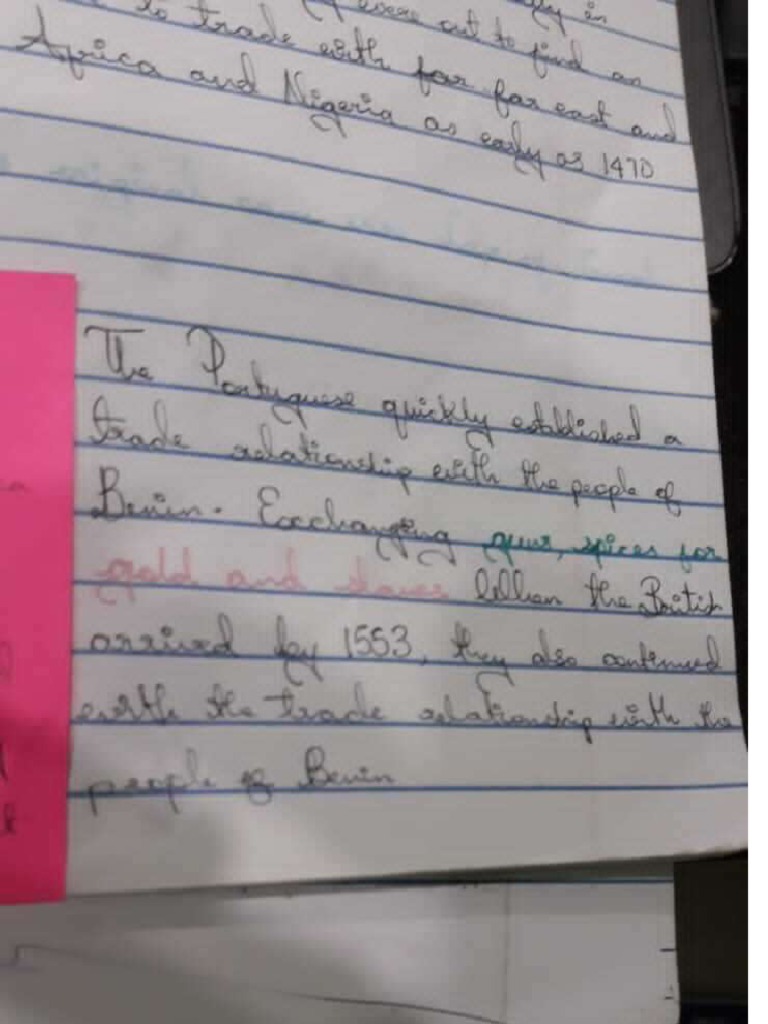 in
were out to find an
to trade with for far east and
Africa and Nigeria as early as 1470
The Portuguese quickly established a
trade relationship with the people of
Benin. Exchanging guns, spices for
gold and slaves When the British
arrived by 1553, they also continued
with the trade relationship with the
people of Benin